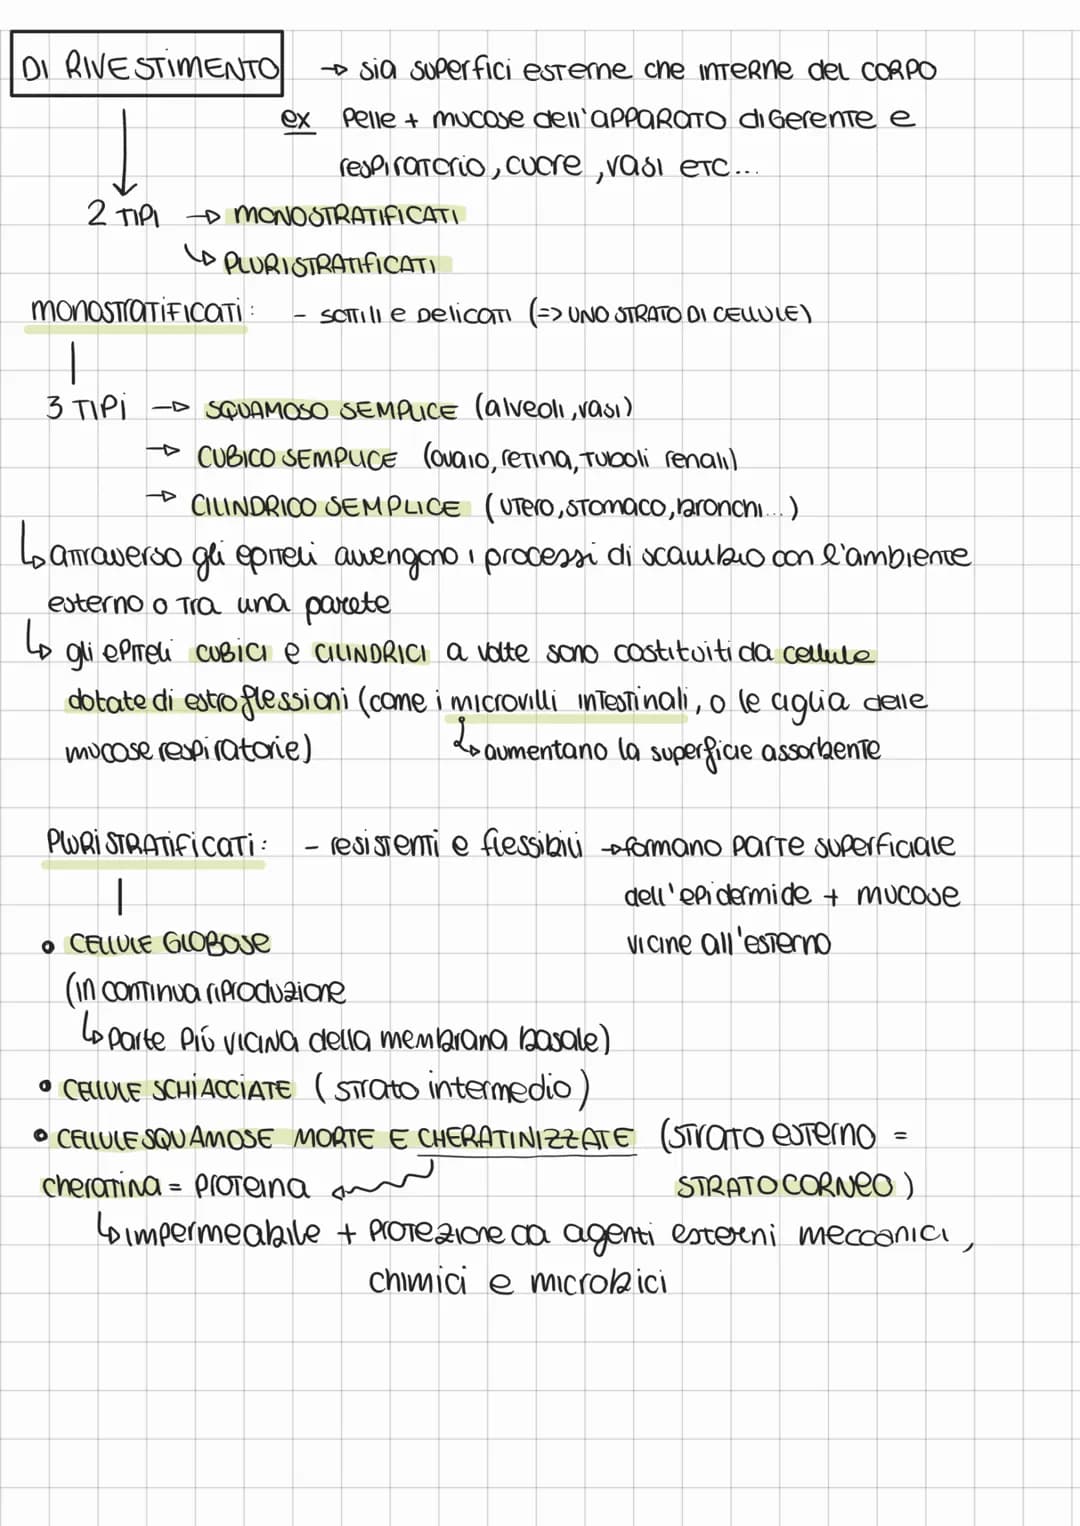 DI RIVESTIMENTO → sia superfici esterne che interne del CORPO
ex pelle + mucose dell'apparato digerente e
respiratorio, cuore, vasi etc...
2 TIPI → MONOSTRATIFICATI
↳ PLURISTRATIFICATI
monostratificati: - sottili e delicati (=> UNO STRATO DI CELLULE)
3 TIPI → SQUAMOSO SEMPLICE (alveoli, vasi)
→ CUBICO SEMPLICE (ovaio, retina, tuboli renali)
→ CILINDRICO SEMPLICE (utero, stomaco, bronchi...)
↳ attraverso gli epiteli avvengono i processi di scambio con l'ambiente
esterno o tra una parete
↳ gli epiteli CUBICI e CILINDRICI a volte sono costituiti da cellule
dotate di estroflessioni (come i microvilli intestinali, o le ciglia delle
mucose respiratorie) ↳ aumentano la superficie assorbente
PLURISTRATIFICATI: - resistenti e flessibili → formano parte superficiale
dell'epidermide + mucose
vicine all'esterno
• CELLULE GLOBOSE
(in continua riproduzione
↳ parte più vicina della membrana basale)
• CELLULE SCHIACCIATE (strato intermedio)
• CELLULE SQUAMOSE MORTE E CHERATINIZZATE (strato esterno =
cheratina = proteina STRATO CORNEO)
↳ impermeabile + protezione da agenti esterni meccanici,
chimici e microbici